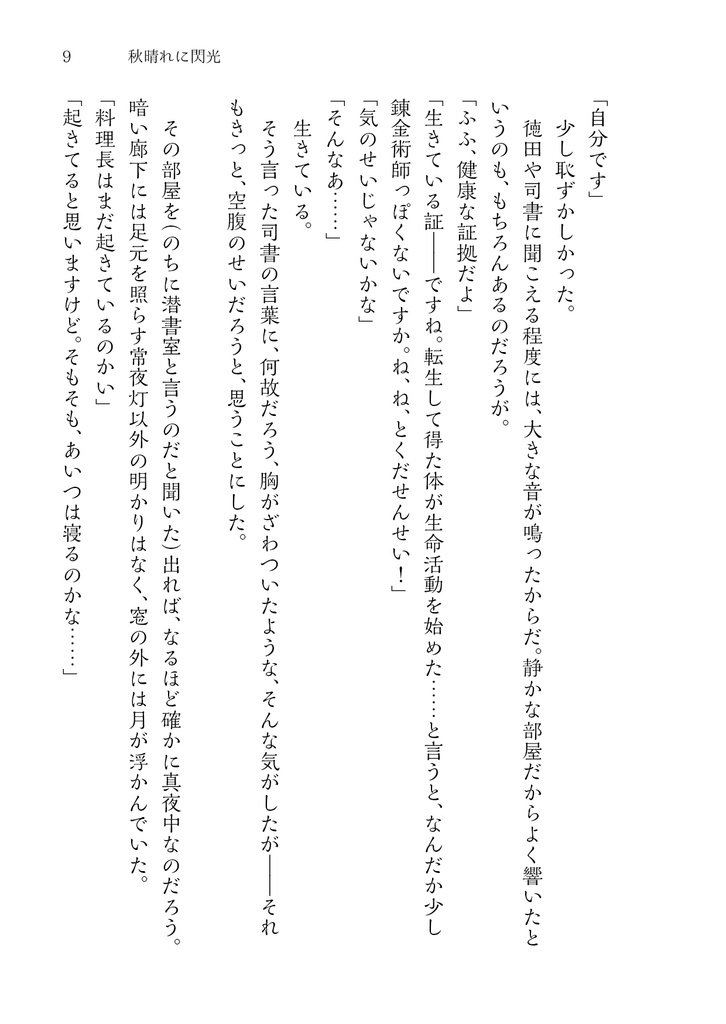 9 秋晴れに閃光
「自分です」
少し恥ずかしかった。
徳田や司書に聞こえる程度には、大きな音が鳴ったからだ。静かな部屋だからよく響いたと
いうのも、もちろんあるのだろうが。
「ふふ、健康な証拠だよ」
「生きている証――ですね。転生して得た体が生命活動を始めた……と言うと、なんだか少し
錬金術師っぽくないですか。ね、ね、とくだせんせい！」
「気のせいじゃないかな」
「そんなあ……」
生きている。
そう言った司書の言葉に、何故だろう、胸がざわついたような、そんな気がしたが――それ
もきっと、空腹のせいだろうと、思うことにした。
その部屋を（のちに潜書室と言うのだと聞いた）出れば、なるほど確かに真夜中なのだろう。
暗い廊下には足元を照らす常夜灯以外の明かりはなく、窓の外には月が浮かんでいた。
「料理長はまだ起きているのかい」
「起きてると思いますけど。そもそも、あいつは寝るのかな……」